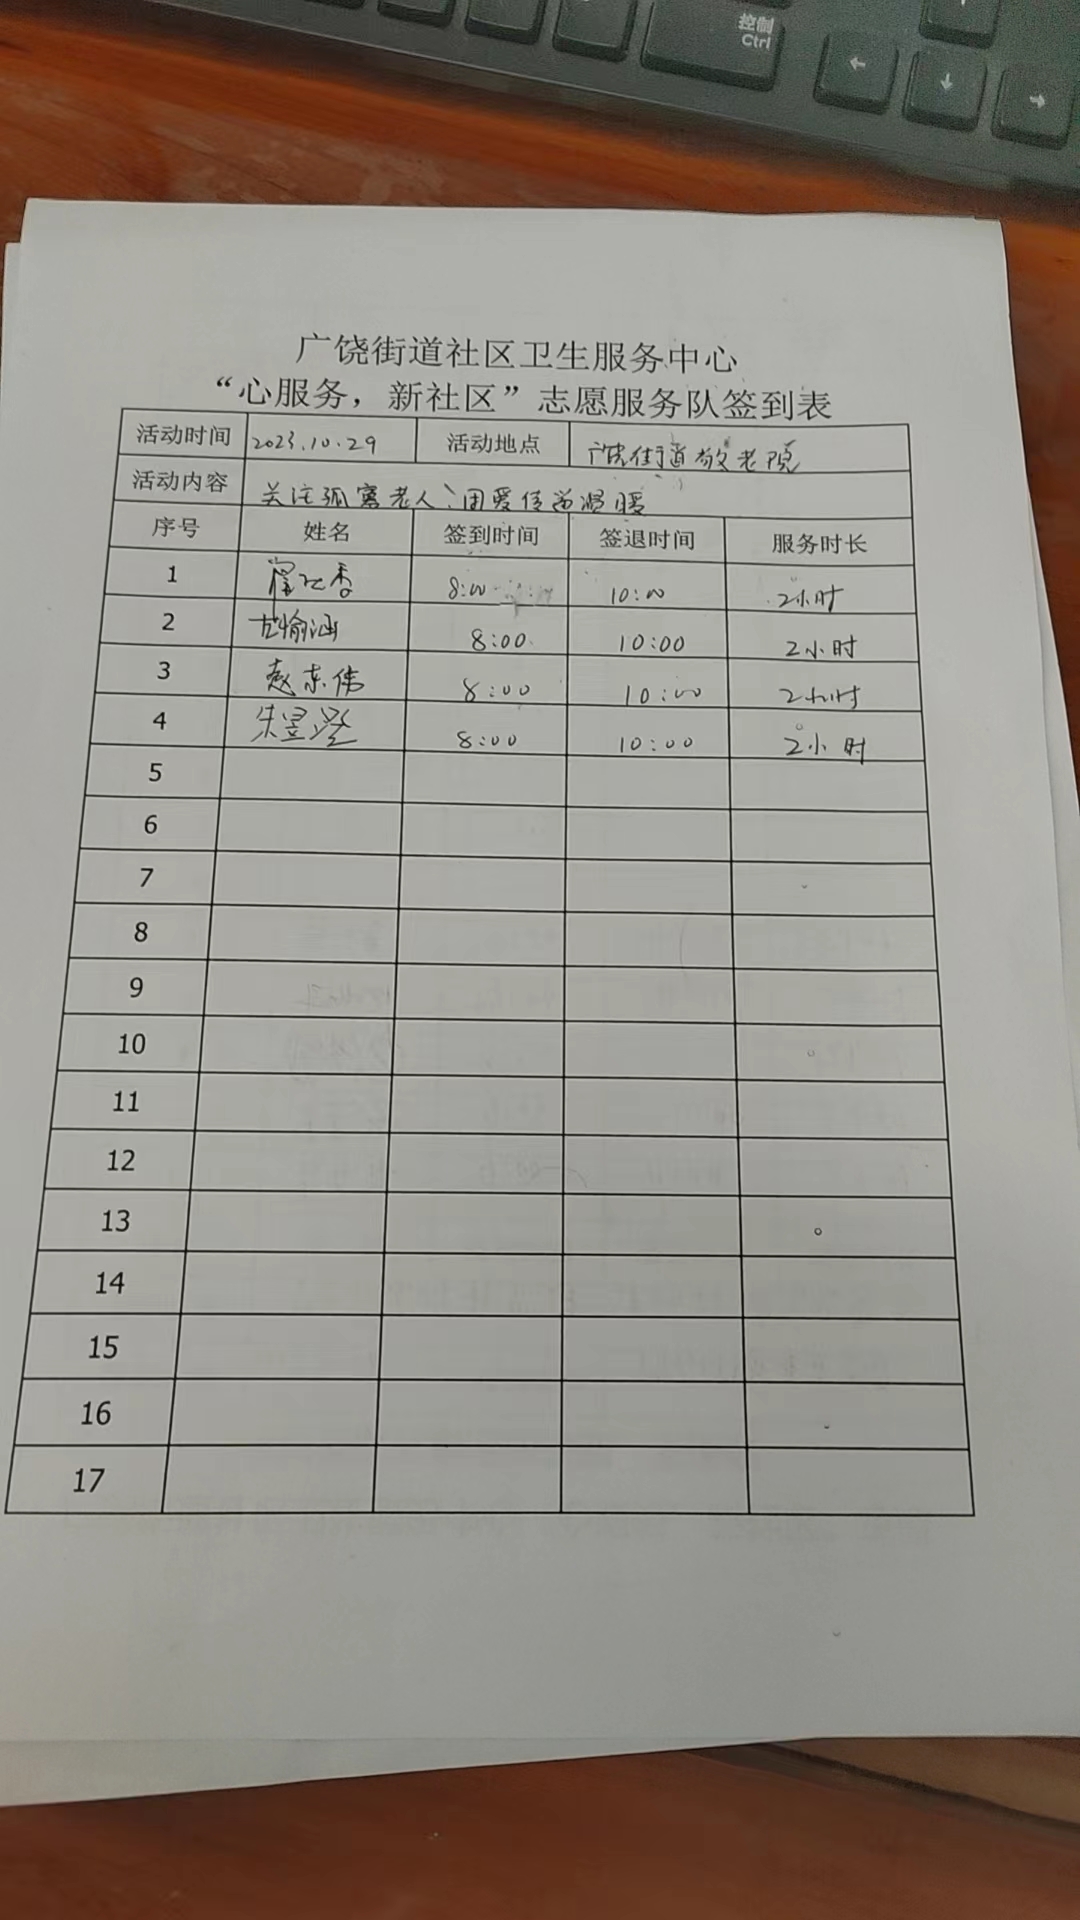 控制
Ctrl
← ↓ →
广饶街道社区卫生服务中心
“心服务，新社区”志愿服务队签到表
活动时间 2023.10.29 活动地点 广饶街道敬老院
活动内容 关注孤寡老人，用爱传递温暖
序号 姓名 签到时间 签退时间 服务时长
1 8:00 10:00 2小时
2 8:00 10:00 2小时
3 赵东伟 8:00 10:00 2小时
4 朱昱 8:00 10:00 2小时
5
6
7
8
9
10
11
12
13
14
15
16
17